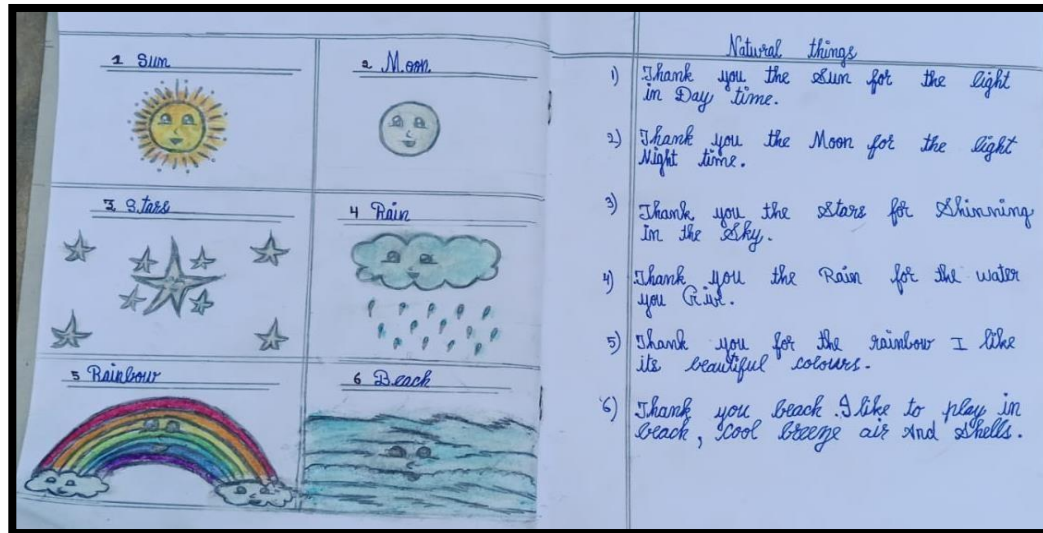 1 Sun
2 Moon
3. Stars
4 Rain
5 Rainbow
6 Beach
Natural things
1) Thank you the Sun for the light
in Day time.
2) Thank you the Moon for the light
Night time.
3) Thank you the Stars for Shinning
In the Sky.
4) Thank you the Rain for the water
you Give.
5) Thank you for the rainbow I like
its beautiful colours.
6) Thank you beach. I like to play in
beach, cool breeze air And Shells.